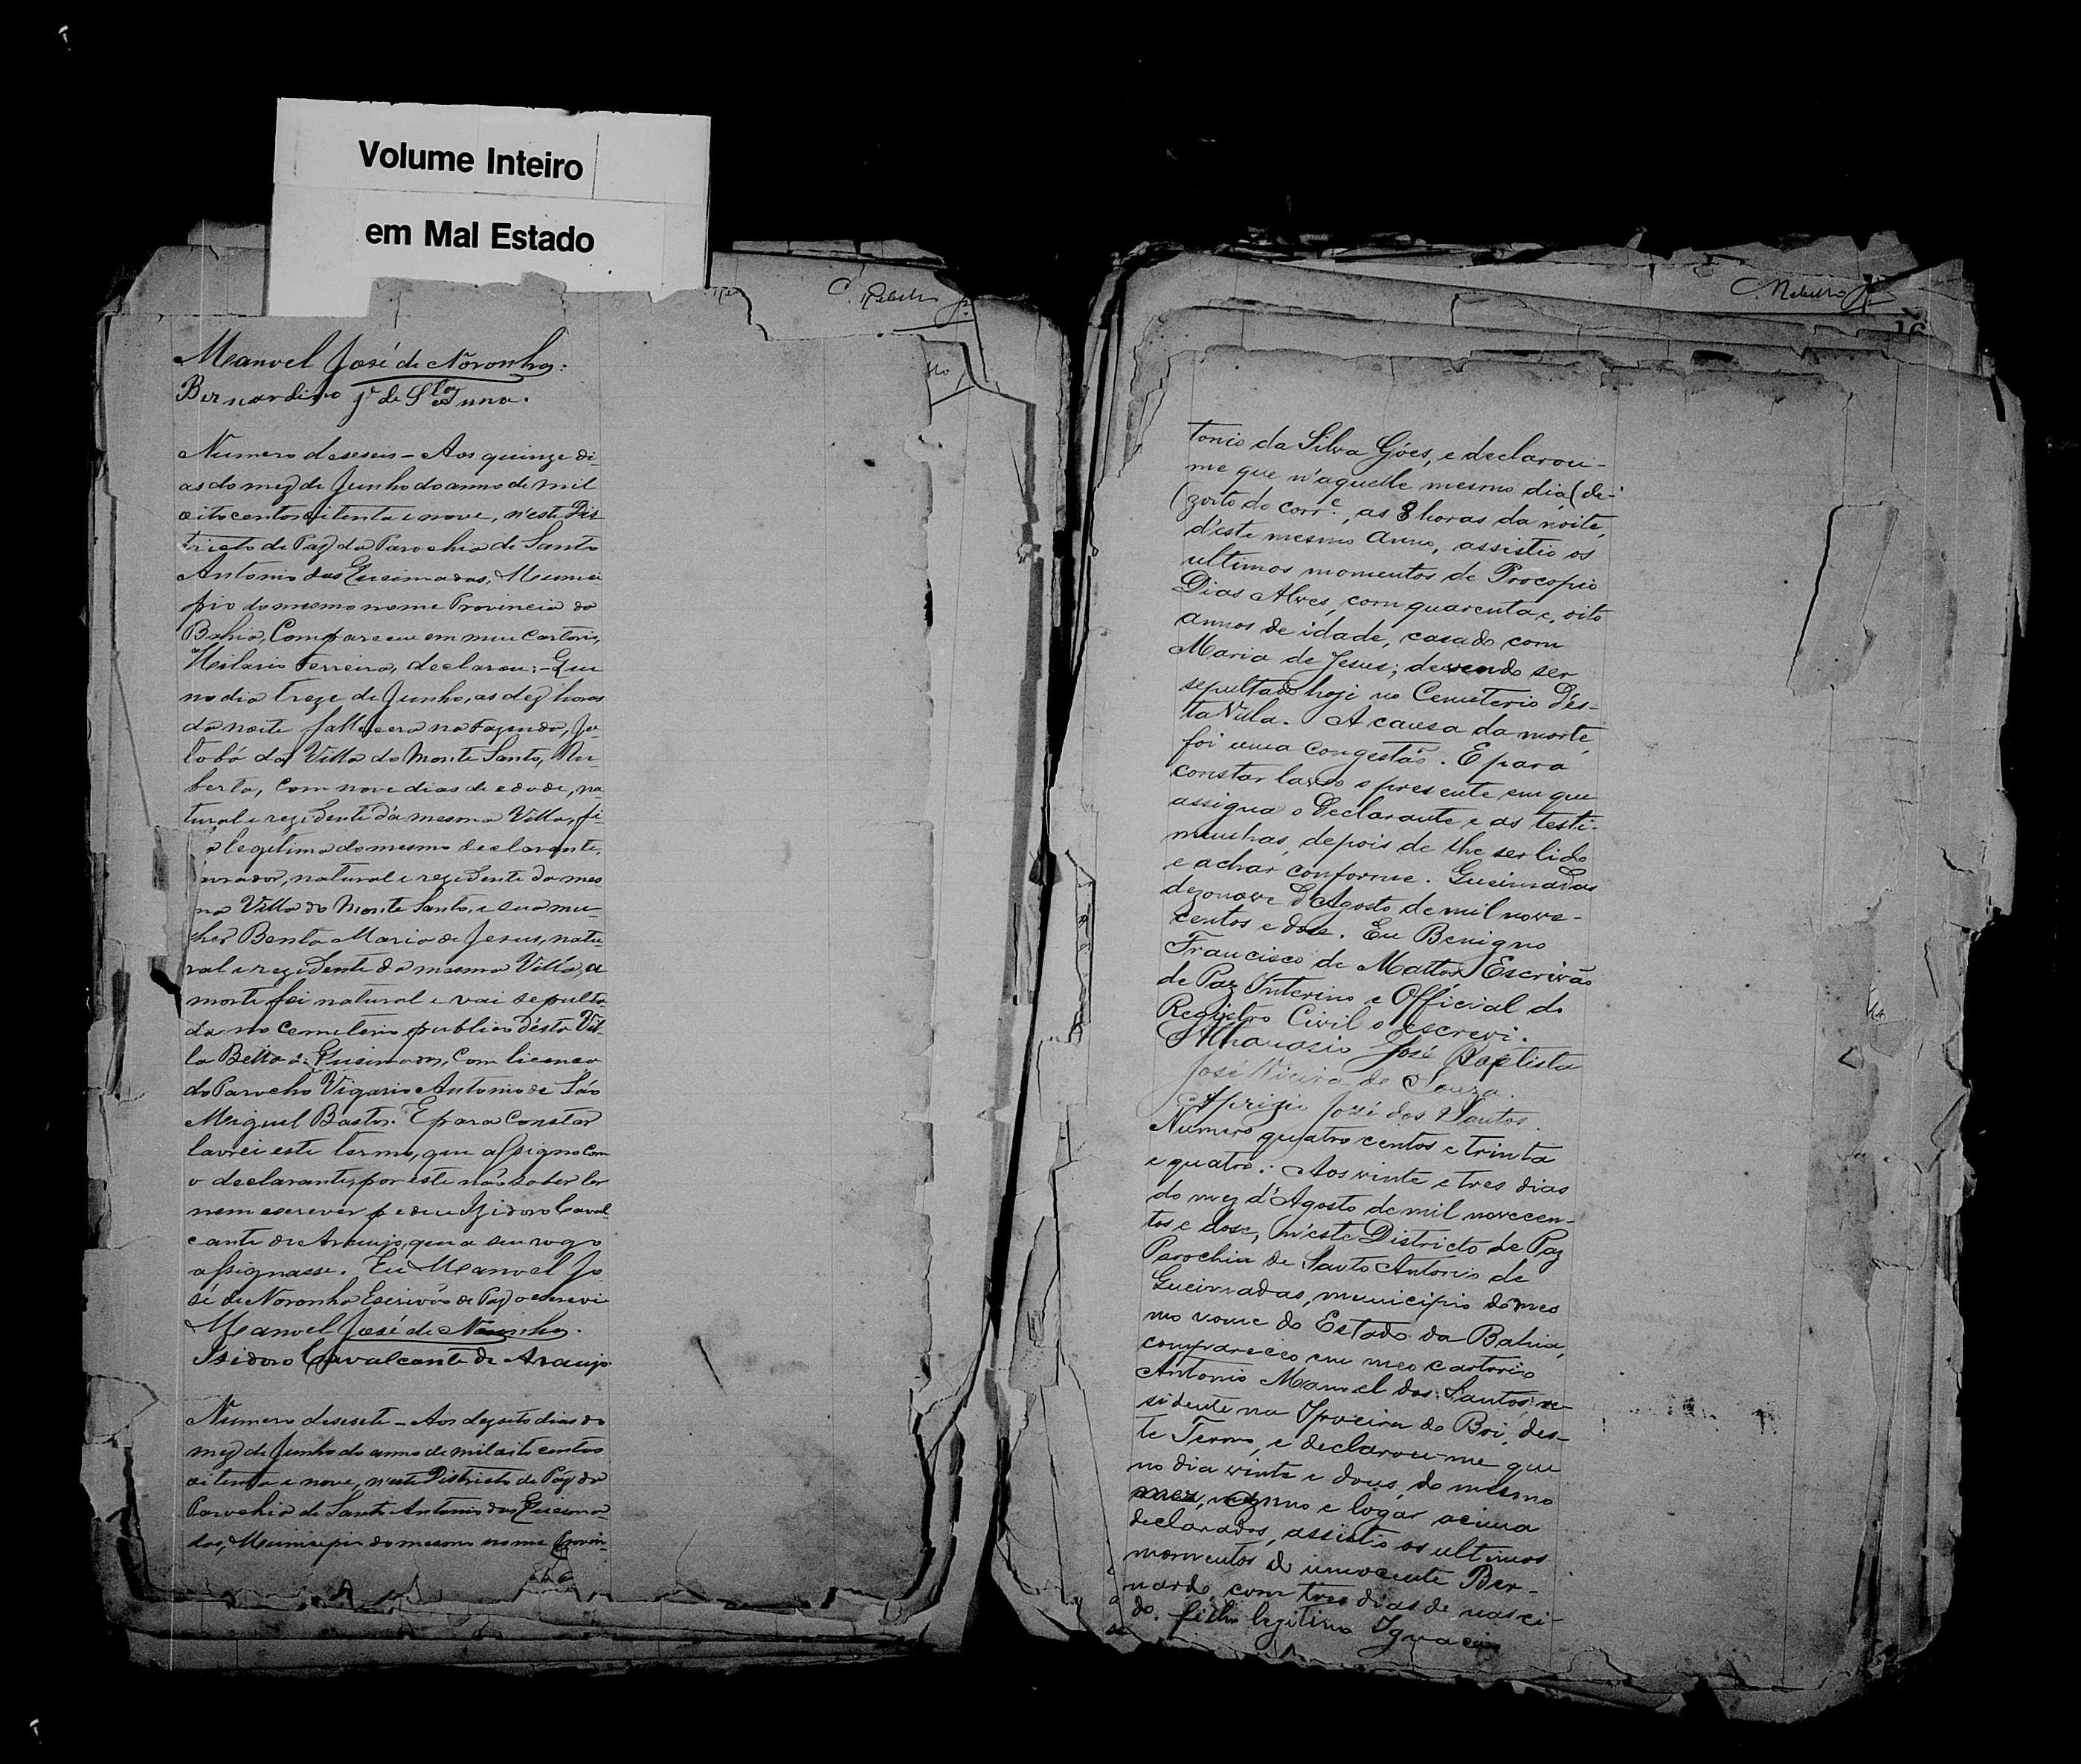 Volume Inteiro
em Mal Estado
Manoel José de Noronha.
Bernardino Je de Sta Anna.
Numero deseseis - Aos quinze di-
as do mez de Junho do anno de mil
oito centos oitenta e nove, n'este Dis
tricto de Paz da Parochia de Santo
Antonio das Queimadas, Munici
pio do mesmo nome Provincia da
Bahia, Compareceu em meu Cartorio,
Hilario Ferreira, declarou: - Que
no dia treze de Junho, as dez horas
da noite fallecera na Fazenda, Ja-
tobá da Villa do Monte Santo,
berta, com nove dias de edade, na
tural e rezidente da mesma Villa, fi
a legitima do mesmo declarante,
lavrador, natural e rezidente da mes
ma Villa do Monte Santo, e sua mu-
lher Benta Maria de Jesus, natu-
ral e rezidente da mesma Villa, a
morte foi natural e vai sepulta
da no Cemeterio publico désta Vil
la Bella de Queimadas, com licença
do Parocho Vigario Antonio de São
Miguel Bastos. E para constar
lavrei este termo, que assigno com
o declarante, por este não saber ler
nem escrever pedeu Izidoro Caval-
cante de Araujo, que a seu rogo
assignasse. Eu Manoel Jo
sé de Noronha Escrivão de Paz o escrevi
Manoel José de Noronha.
Isidoro Cavalcante de Araujo
Numero desesete - Aos dezoito dias do
mez de Junho do anno de mil oito centos
oitenta e nove, n'este Districto de Paz da
Parochia de Santo Antonio das Queima-
das, Municipio do mesmo nome Provin-
tonio da Silva Góes, e declarou-
me que n'aquelle mesmo dia (de-
(zoito do corre, as 8 horas da noite,
d'este mesmo anno, assistio os
ultimos momentos de Procopio
Dias Alves, com quarenta e oito
annos de idade, casado com
Maria de Jesus; devendo ser
sepultado hoje no Cemeterio dés-
ta Villa. A causa da morte
foi uma congestão. E para
constar lavro o presente em que
assigna o Declarante e as testi-
munhas, depois de lhe ser lido
e achar conforme. Queimadas
dezonove d'Agosto de mil nove-
centos e dose. Eu Benigno
Francisco de Mattos Escrivão
de Paz Interino e Official do
Registro Civil o escrevi.
Athanasio José Baptista
José Vieira de Souza.
Aprigio José dos Santos.
Numero quatro centos e trinta
e quatro. Aos vinte e tres dias
do mez d'Agosto de mil novecen-
tos e dose, n'este Districto de Paz
Parochia de Santo Antonio de
Queimadas, municipio do mes
mo nome do Estado da Bahia,
compareceo em meo cartorio
Antonio Manoel dos Santos, re-
sidente na do Boi, des-
te Termo, e declarou-me que
no dia vinte e dous, do mesmo
mez, anno e logar acima
declarados, assistio os ultimos
momentos do innocente Ber-
nardo com tres dias de nasci-
do, filho legitimo Ignacio